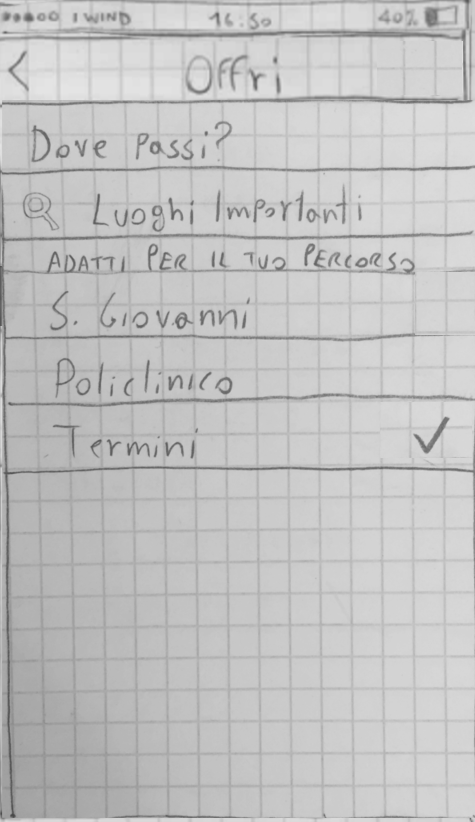 I WIND 16:50 40%
< Offri
Dove passi?
Luoghi Importanti
ADATTI PER IL TUO PERCORSO
S. Giovanni
Policlinico
Termini ✓